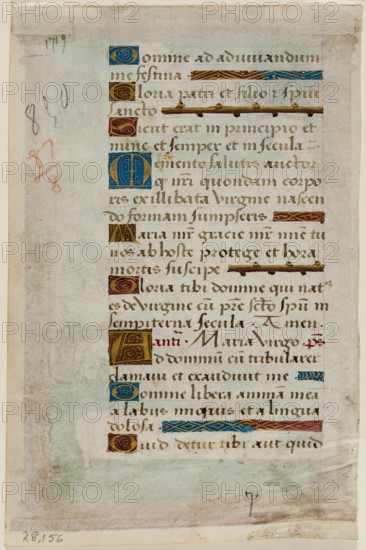 1719
Domine ad adiuvandum
me festina
Gloria patri et filio ⁊ spũi
sancto
Sicut erat in principio et
nunc et semper et in secula
Memento salutis auctor
q̃ nr̃i quondam corpo
ris ex illibata virgine nascen
do formam sumpseris
Maria mr̃ gracie mr̃ mie tu
nos ab hoste protege et hora
mortis suscipe
Gloria tibi domine qui nat9
es de virgine cũ pr̃e sc̃to spũ in
sempiterna secula. Amen.
antí. Maria virgo ps.
Ad dominũ cũ tribularer
clamavi et exaudivit me.
Domine libera animã mea
a labiis iniquis et a lingua
dolosa.
Quid detur tibi aut quid
7
28,156